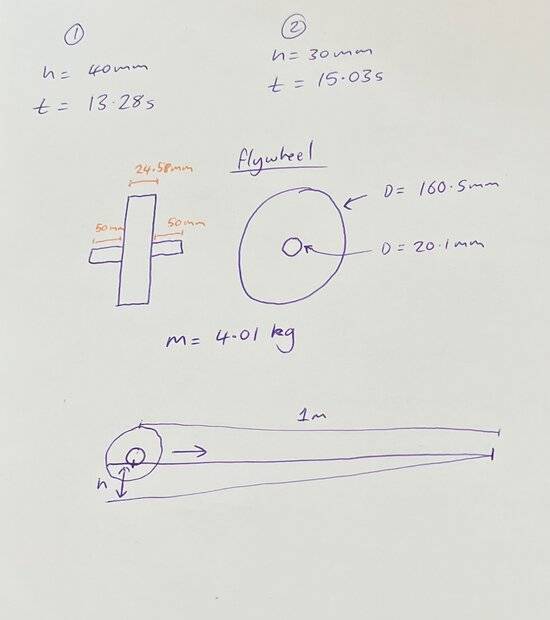 ①
h = 40mm
t = 13.28s
②
h = 30mm
t = 15.03s
flywheel
24.58mm
50mm
50mm
D = 160.5mm
D = 20.1mm
m = 4.01 kg
1m
h